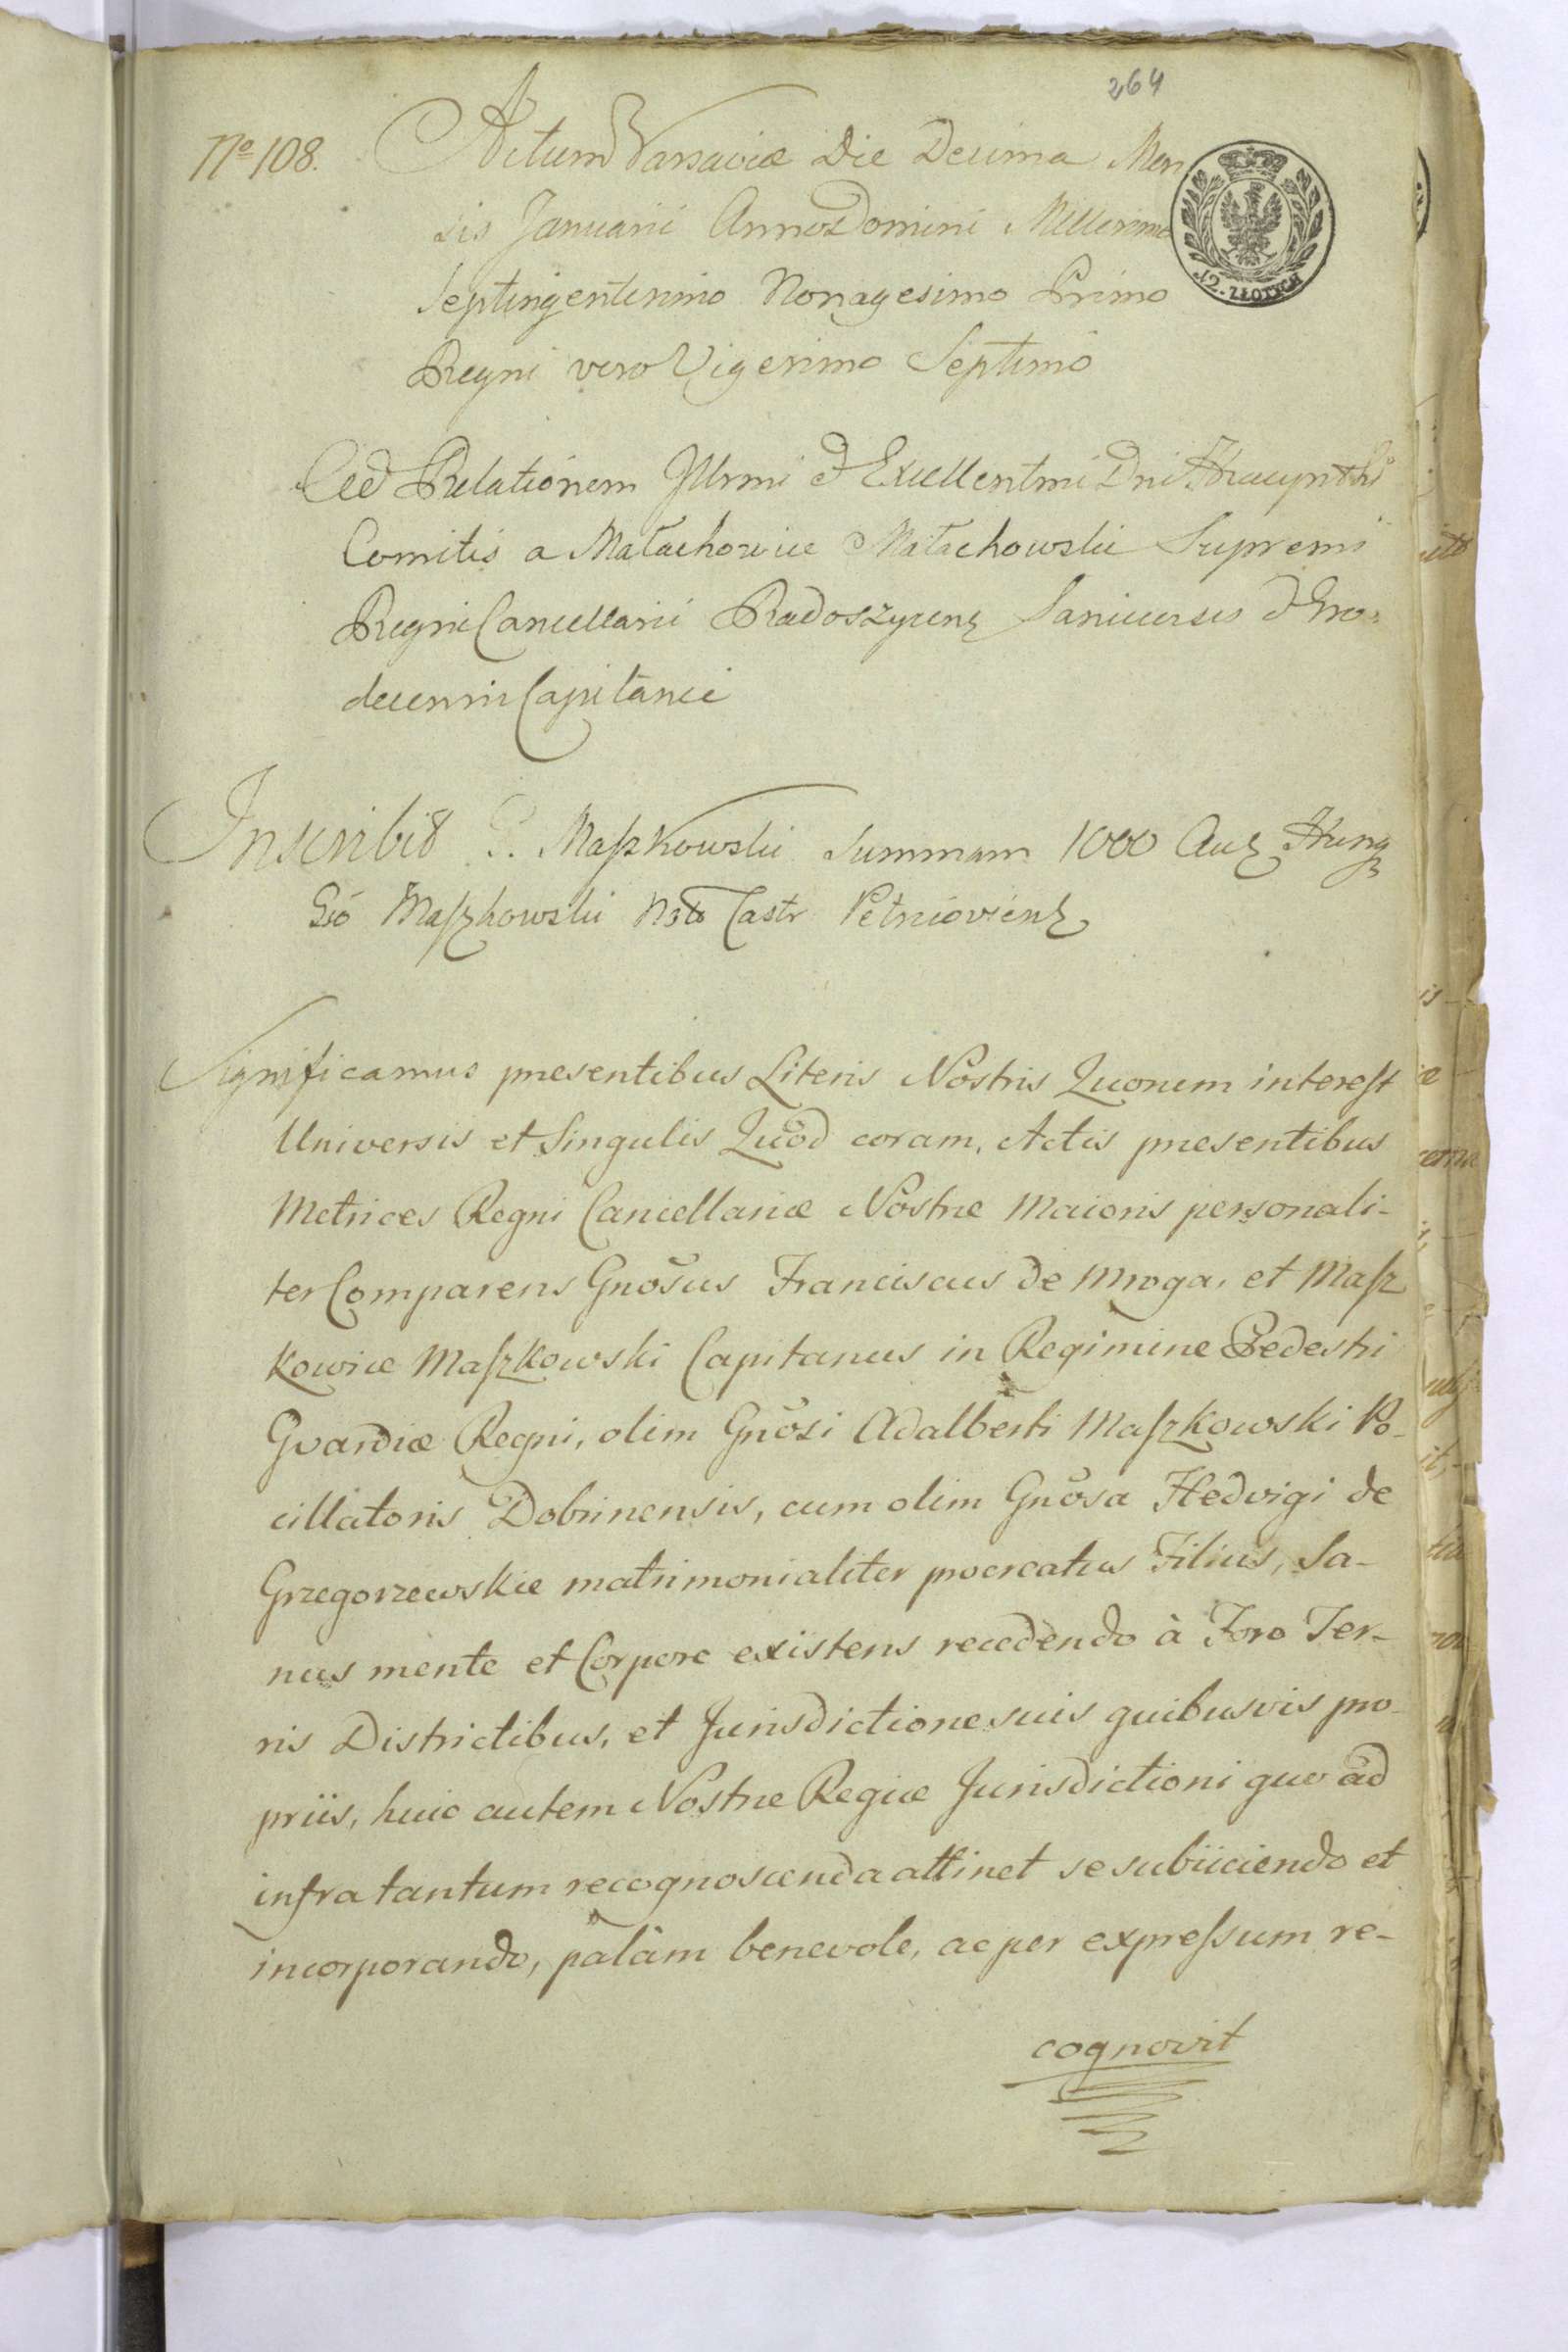 264
No 108.
Actum Varsaviæ Die Decima Men
sis Januarii Anno Domini Millesimo
12. ZŁOTYCH
Septingentesimo Nonagesimo Primo
Regni vero Vigesimo Septimo
Ad Relationem Jllrmi & Excellentmi Dni Hyacynthi
Comitis a Małachowice Małachowski Supremi
Regni Cancellarii Radoszycens & Gro-
decensis Capitanei
Inscribit G. Maszkowski Summam 1000 Aur Hung
Gso Maszkowski Castr
Significamus presentibus Literis Nostris Quorum interest
Universis et Singulis Quod coram, Actis presentibus
Metrices Regni Cancellariæ Nostre Maioris personali-
ter Comparens Gnosus Franciscus de Mroga, et Masz
kowice Maszkowski Capitaneus in Regimine Pedestri
Gvardiæ Regni, olim Gnosi Adalberti Maszkowski Po-
cillatoris Dobrinensis, cum olim Gnosa Hedvigi de
Grzegorzewskie matrimonialiter procreatus Filius, Sa-
nus mente et Corpore existens recedendo à Foro Ter-
ris Districtibus, et Jurisdictione suis quibusvis pro-
priis, huic autem Nostre Regiæ Jurisdictioni quo ad
infra tantum recognoscenda attinet se subiiciendo et
incorporando, palàm benevole, ac per expressum re-
cognovit